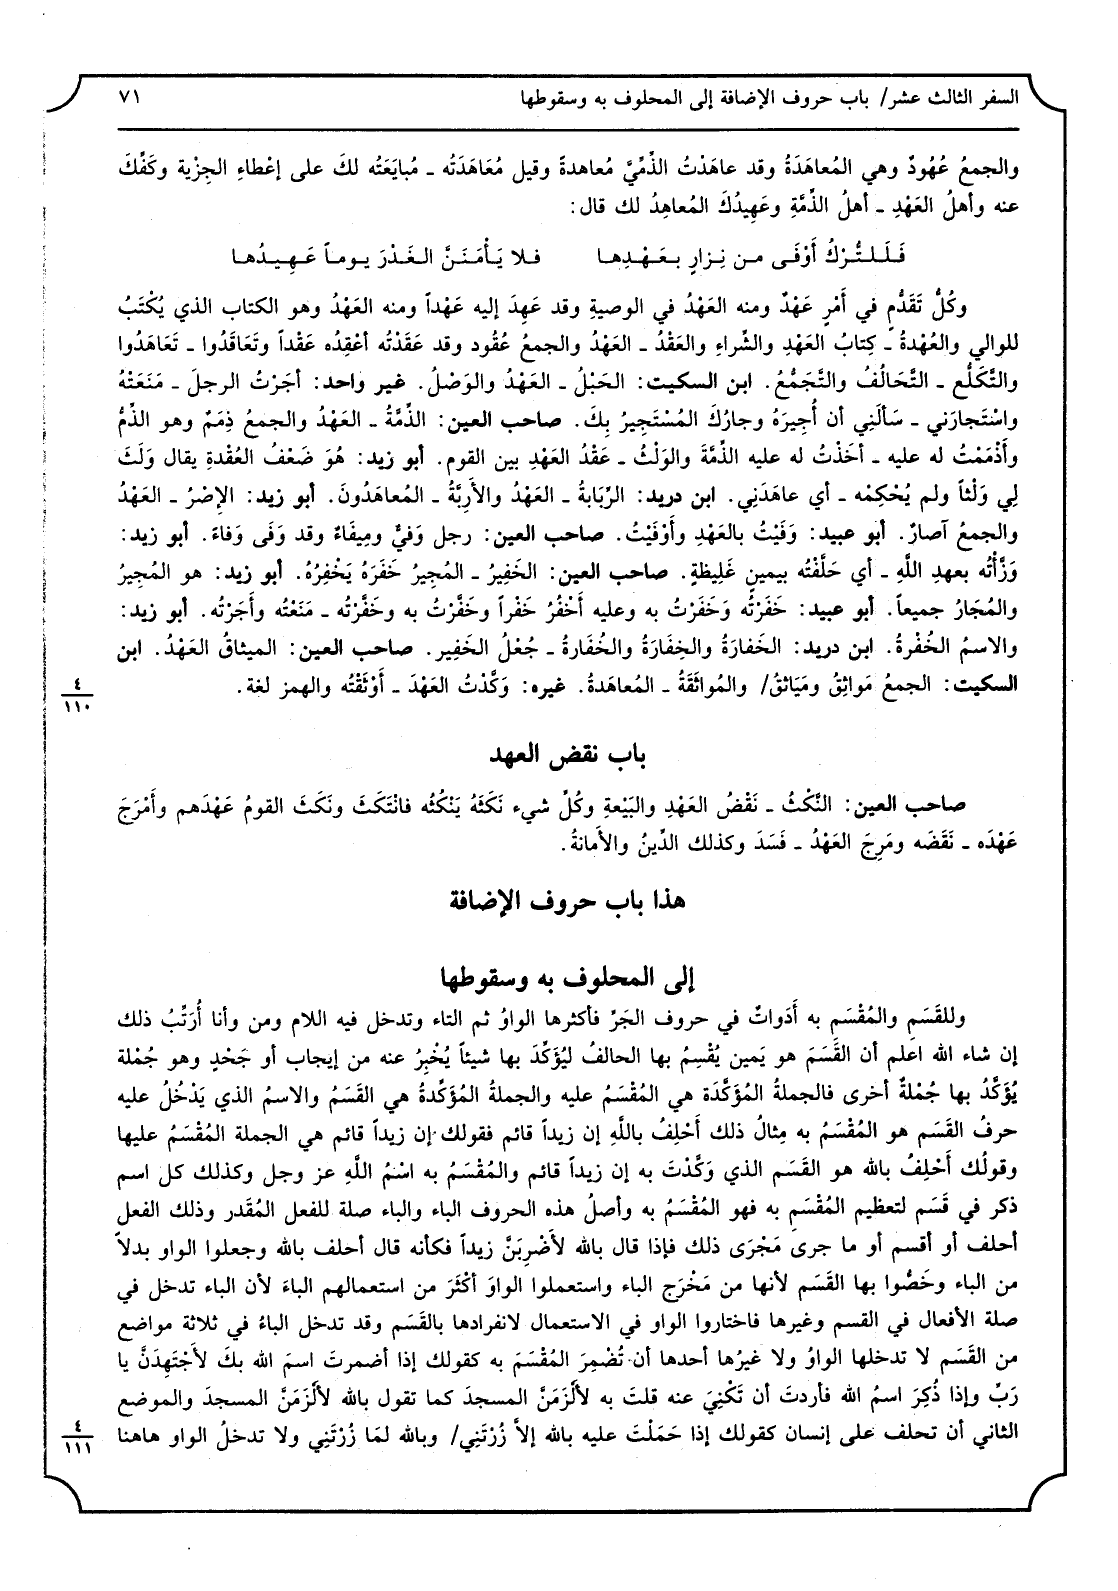 السفر الثالث عشر/ باب حروف الإضافة إلى المحلوف به وسقوطها ٧١
والجمعُ عُهُودٌ وهي المُعاهَدَةُ وقد عاهَدْتُ الذِّمِّيَّ مُعاهدةً وقيل مُعَاهَدَتُه ـ مُبايَعَتُه لكَ على إعْطاءِ الجِزْية وكَفِّكَ
عنه وأهلُ العَهْدِ ـ أهلُ الذِّمَّةِ وعَهِيدُكَ المُعاهِدُ لك قال:
فَلَلتُّرْكُ أوْفَى من نِزارٍ بعَهْدِها فلا يَأْمَنَنَّ الغَدْرَ يوماً عَهِيدُها
وكُلُّ تَقَدُّمٍ في أَمْرٍ عَهْدٌ ومنه العَهْدُ في الوصيةِ وقد عَهِدَ إليه عَهْداً ومنه العَهْدُ وهو الكتاب الذي يُكْتَبُ
للوالي والعُهْدةُ ـ كِتابُ العَهْدِ والشِّراءِ والعَقْدُ ـ العَهْدُ والجمعُ عُقُود وقد عَقَدْتُه أعْقِدُه عَقْداً وتَعَاقَدُوا ـ تَعَاهَدُوا
والتَّكَلُّع ـ التَّحَالُفُ والتَّجَمُّعُ. ابن السكيت: الحَبْلُ ـ العَهْدُ والوَصْلُ. غير واحد: أجَرْتُ الرجلَ ـ مَنَعَتْهُ
واسْتَجارَني ـ سَألَنِي أن أُجِيرَهُ وجارُكَ المُسْتَجِيرُ بِكَ. صاحب العين: الذِّمَّةُ ـ العَهْدُ والجمعُ ذِمَمٌ وهو الذمُّ
وأَذْمَمْتُ له عليه ـ أخَذْتُ له عليه الذِّمَّةَ والوَلْثُ ـ عَقْدُ العَهْدِ بين القوم. أبو زيد: هُوَ ضَعْفُ العُقْدةِ يقال وَلَثَ
لِي وَلْثاً ولم يُحْكِمْه ـ أي عاهَدَنِي. ابن دريد: الرِّبَابَةُ ـ العَهْدُ والأَرِبَّةُ ـ المُعاهَدُونَ. أبو زيد: الإصْرُ ـ العَهْدُ
والجمعُ آصارٌ. أبو عبيد: وَفَيْتُ بالعَهْدِ وأوْفَيْتُ. صاحب العين: رجل وَفيٌّ ومِيفَاءٌ وقد وَفَى وَفاءً. أبو زيد:
وَزَّأْتُه بعهدِ اللَّهِ ـ أي حَلَّفْتُه بيمينٍ غَلِيظةٍ. صاحب العين: الخَفِيرُ ـ المُجِيرُ خفَرَهُ يَخْفِرُهُ. أبو زيد: هو المُجِيرُ
والمُجَارُ جميعاً. أبو عبيد: خَفَرْتُه وَخَفَرْتُ به وعليه أخْفُرُ خَفْراً وخَفَّرْتُ به وخَفَّرْتُه ـ مَنَعْتُه وأجَرْتُه. أبو زيد:
والاسمُ الخُفْرةُ. ابن دريد: الخَفارَةُ والخِفَارَةُ والخُفَارة ـ جُعْلُ الخَفِير. صاحب العين: الميثاقُ العَهْدُ. ابن
السكيت: الجمعُ مَواثِقُ ومَيَاثقُ/ والمُواثَقَةُ ـ المُعاهَدةُ. غيره: وَكَّدْتُ العَهْدَ ـ أوْثَقْتُه والهمز لغة.
٤
١١٠
باب نقض العهد
صاحب العين: النَّكْثُ ـ نَقْضُ العَهْدِ والبَيْعةِ وكُلِّ شيء نَكَثَهُ يَنْكُثُه فانْتَكَثَ ونَكَثَ القومُ عَهْدَهم وأَمْرَجَ
عَهْدَه ـ نَقَضَه ومَرِجَ العَهْدُ ـ فسَدَ وكذلك الدِّينُ والأمانةُ.
هذا باب حروف الإضافة
إلى المحلوف به وسقوطها
وللقَسَمِ والمُقْسَمِ به أَدَواتٌ في حروف الجَرِّ فأكثرها الواوُ ثم التاء وتدخل فيه اللام ومن وأنا أُرَتِّبُ ذلك
إن شاء الله اعلم أن القَسَمَ هو يَمين يُقْسِمُ بها الحالفُ ليُؤَكِّدَ بها شيئاً يُخْبِرُ عنه من إيجاب أو جَحْدٍ وهو جُمْلة
يُؤَكَّدُ بها جُمْلةٌ أخرى فالجملةُ المُؤَكَّدَة هي المُقْسَمُ عليه والجملةُ المُؤَكِّدةُ هي القَسَمُ والاسمُ الذي يَدْخُلُ عليه
حرفُ القَسَم هو المُقْسَمُ به مِثالُ ذلك أَحْلِفُ باللَّهِ إن زيداً قائم فقولك إن زيداً قائم هي الجملة المُقْسَمُ عليها
وقولُك أَحْلِفُ بالله هو القَسَم الذي وَكَّدْتَ به إن زيداً قائم والمُقْسَمُ به اسْمُ اللَّهِ عز وجل وكذلك كل اسم
ذكر في قَسَم لتعظيم المُقْسَمِ به فهو المُقْسَمُ به وأصلُ هذه الحروف الباء والباء صلة للفعل المُقَدر وذلك الفعل
أحلف أو أقسم أو ما جرى مَجْرَى ذلك فإذا قال بالله لأضْرِبَنَّ زيداً فكأنه قال أحلف بالله وجعلوا الواو بدلاً
من الباء وخَصُّوا بها القَسَم لأنها من مَخْرَج الباء واستعملوا الواوَ أكْثَرَ من استعمالهم الباءَ لأن الباء تدخل في
صلة الأفعال في القسم وغيرها فاختاروا الواو في الاستعمال لانفرادها بالقَسَم وقد تدخل الباءُ في ثلاثة مواضع
من القَسَم لا تدخلها الواوُ ولا غيرُها أحدها أن تُضْمِرَ المُقْسَمَ به كقولك إذا أضمرتَ اسمَ الله بكَ لأجْتَهِدَنَّ يا
رَبِّ وإذا ذُكِرَ اسمُ الله فأردتَ أن تَكْنِيَ عنه قلتَ به لألْزَمَنَّ المسجدَ كما تقول بالله لألْزَمَنَّ المسجدَ والموضع
الثاني أن تحلف على إنسان كقولك إذا حَمَلْتَ عليه بالله إلاَّ زُرْتَنِي/ وبالله لمَا زُرْتَنِي ولا تدخلُ الواو هاهنا
٤
١١١